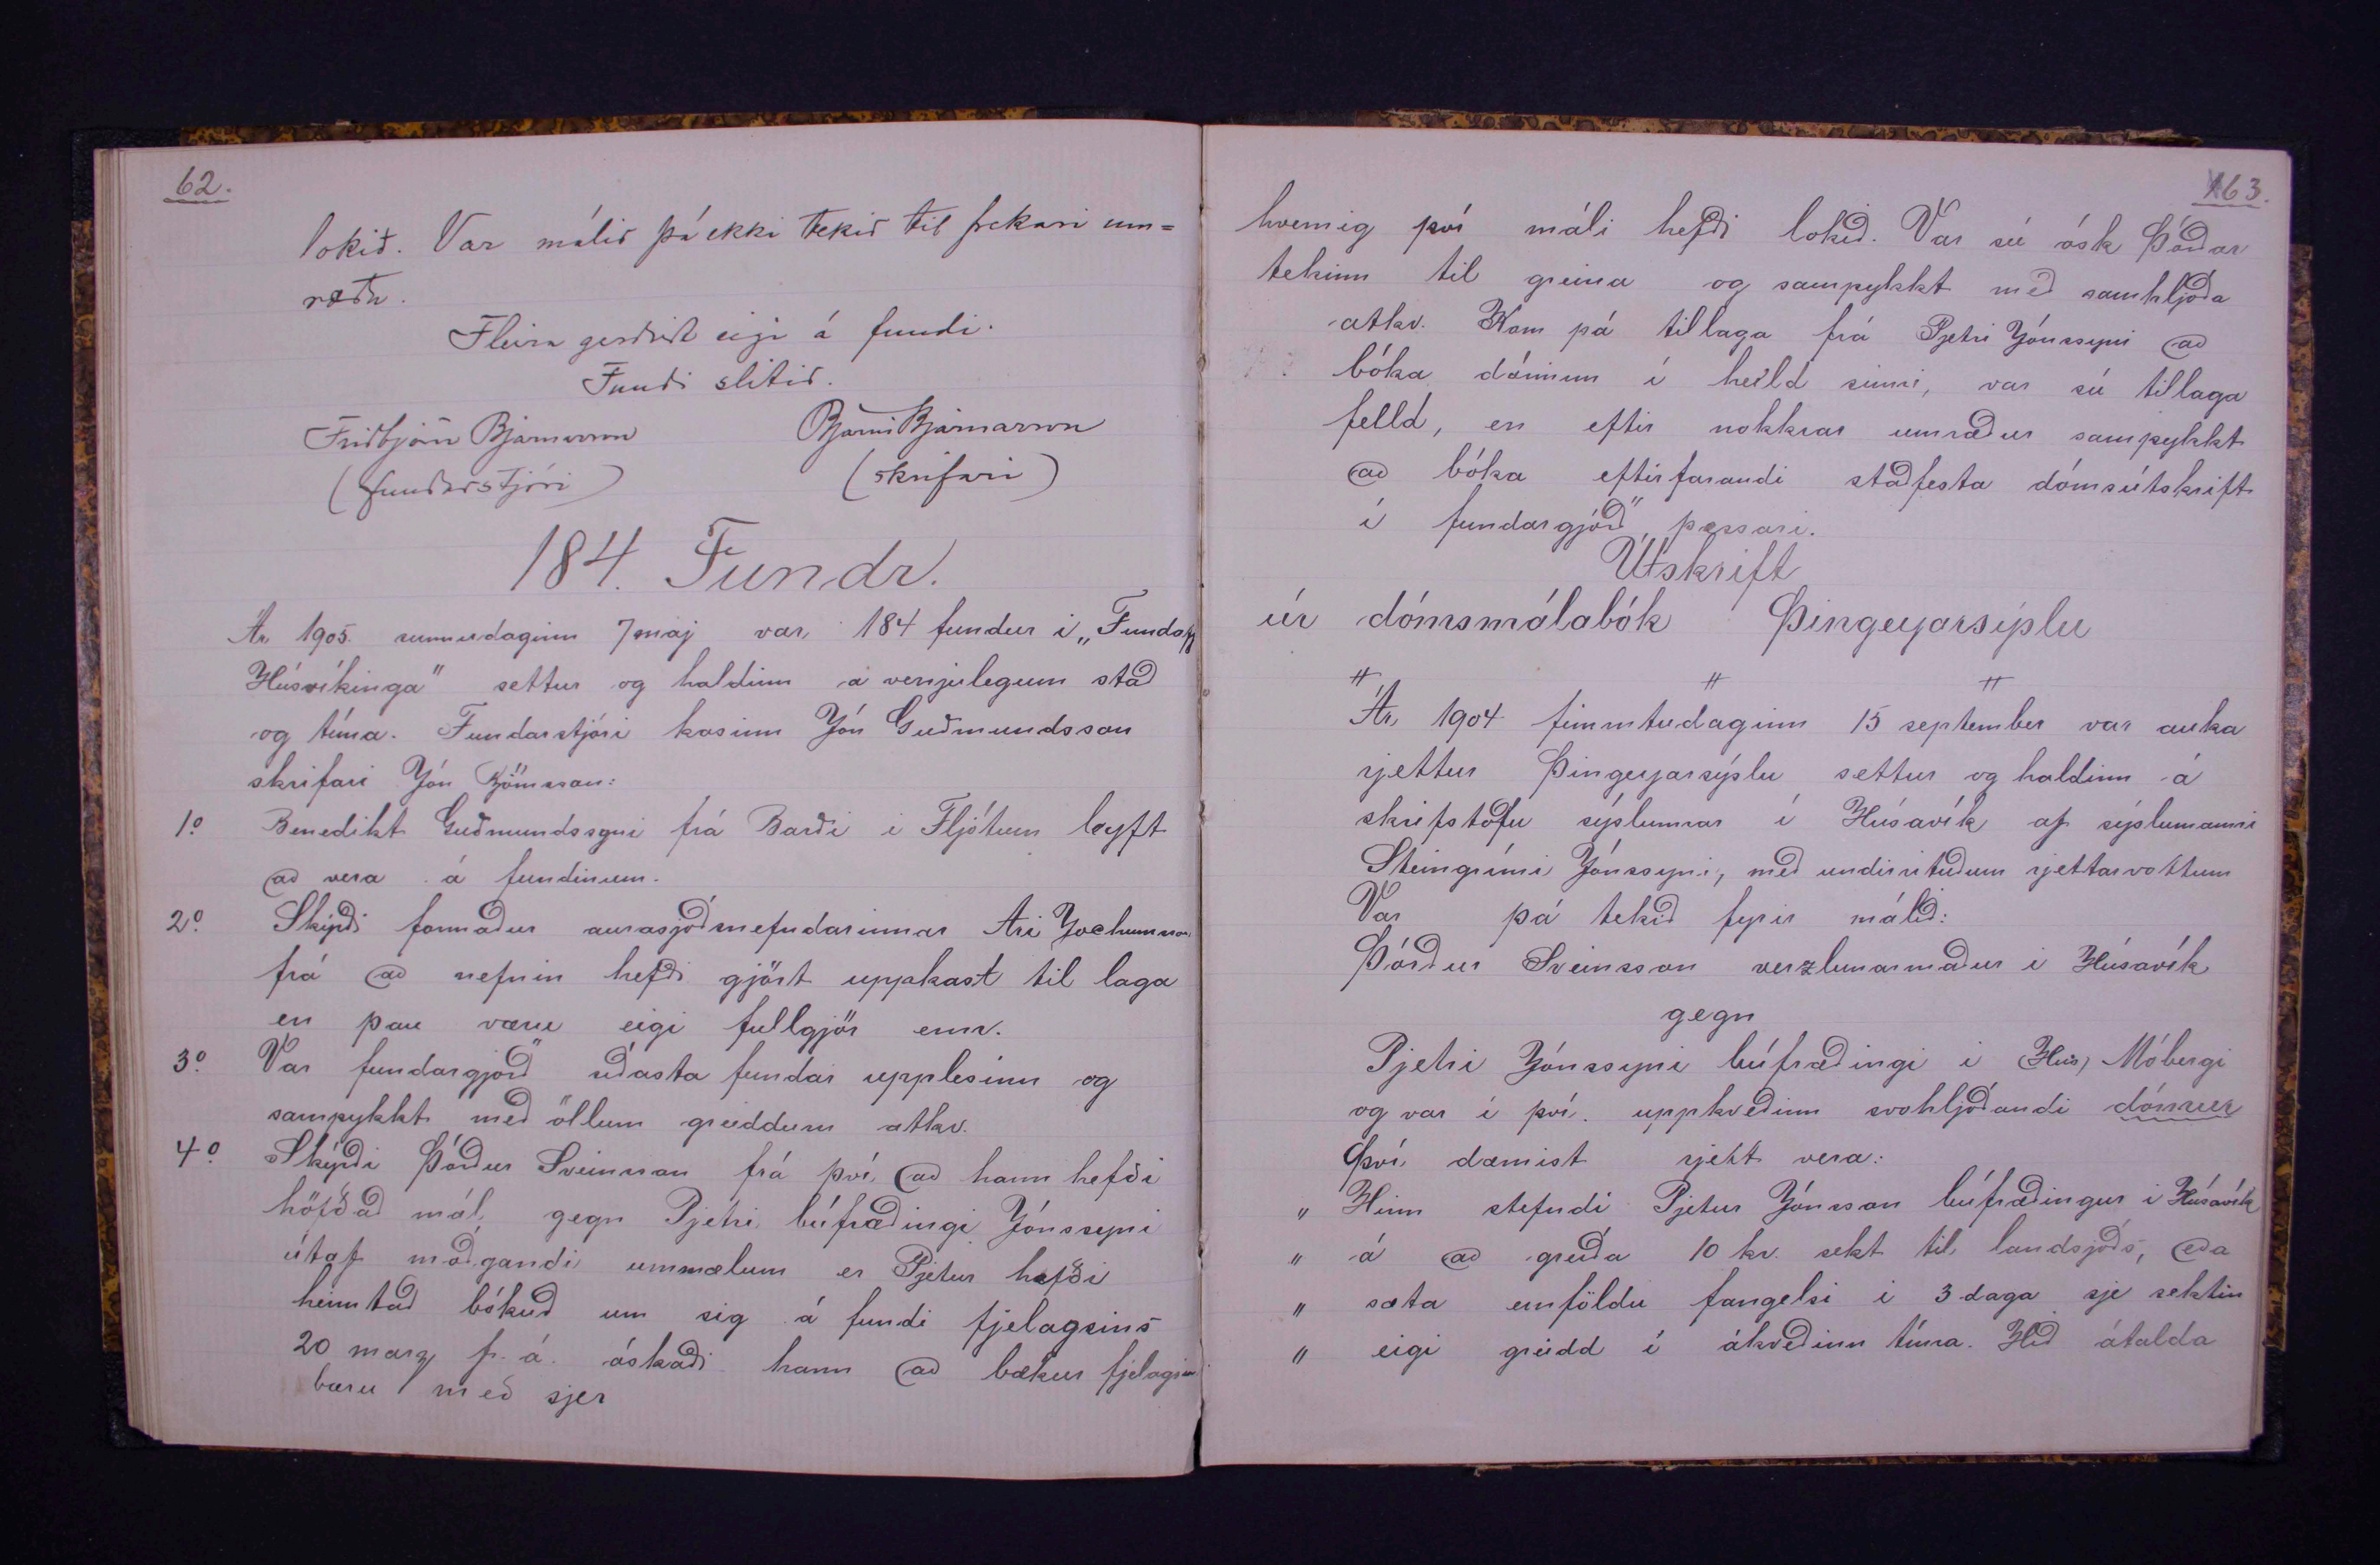 62.
lokið. Var málið þá ekki tekið til frekari um=
ræðu.
Fleira gerðist eigi á fundi.
Fundi slitið.
Friðbjörn Bjarnarson Bjarni Bjarnarson
(fundarstjóri) (skrifari)
184. Fundr.
Ár 1905. sunnudaginn 7 maj var 184 fundur i „Fundafj
Húsvíkinga" settur og haldinn á venjulegum stað
og tíma. Fundarstjóri kosinn Jón Guðmundsson
skrifari Jón Björnsson:
1o Benedikt Guðmundssyni frá Barði i Fljótum leyft
að vera á fundinum.
2o Skýrði formaður aurasjóðsnefndarinnar Ari Jochumsson
frá að nefnin hefði gjört uppkast til laga
en þau væru eigi fullgjör enn.
3o Var fundargjörð síðasta fundar upplesinn og
samþykkt með öllum greiddum atkv.
4o Skýrði Þórður Sveinsson frá því að hann hefði
höfðað mál gegn Pjetri búfræðingi Jónssyni
útaf móðgandi ummælum er Pjetur hefði
heimtað bókuð um sig á fundi fjelagsins
20 marz f. á. óskaði hann að bækur fjelagsins
bæru með sjer
163.
hvernig því máli hefði lokið. Var sú ósk Þórðar
tekinn til greina og samþykkt með samhljóða
atkv. Kom þá tillaga frá Pjetri Jónssyni að
bóka dóminn í heild sinni, var sú tillaga
felld, en eftir nokkrar umræður samþykkt
að bóka eftirfarandi staðfesta dómsútskrift
í fundargjörð þessari.
Útskrift
úr dómsmálabók Þingeyarsýslu
Ár 1904 fimmtudaginn 15 september var auka
rjettur Þingeyjarsýslu settur og haldinn á
skrifstofu sýslunnar í Húsavík af sýslumanni
Steingrími Jónssyni, með undirrituðum rjettarvottum
Var þá tekið fyrir málið:
Þórður Sveinsson verzlunarmaður i Húsavík
gegn
Pjetri Jónssyni búfræðingi i (Hús) Móbergi
og var í því uppkveðinn svohljóðandi dómur
Því dæmist rjett vera:
„ Hinn stefndi Pjetur Jónsson búfræðingur i Húsavík
„ á að greiða 10 kr. sekt til landsjóðs, eða
„ sæta einföldu fangelsi i 3 daga sje sektin
„ eigi greidd í ákveðinn tíma. Hið átalda